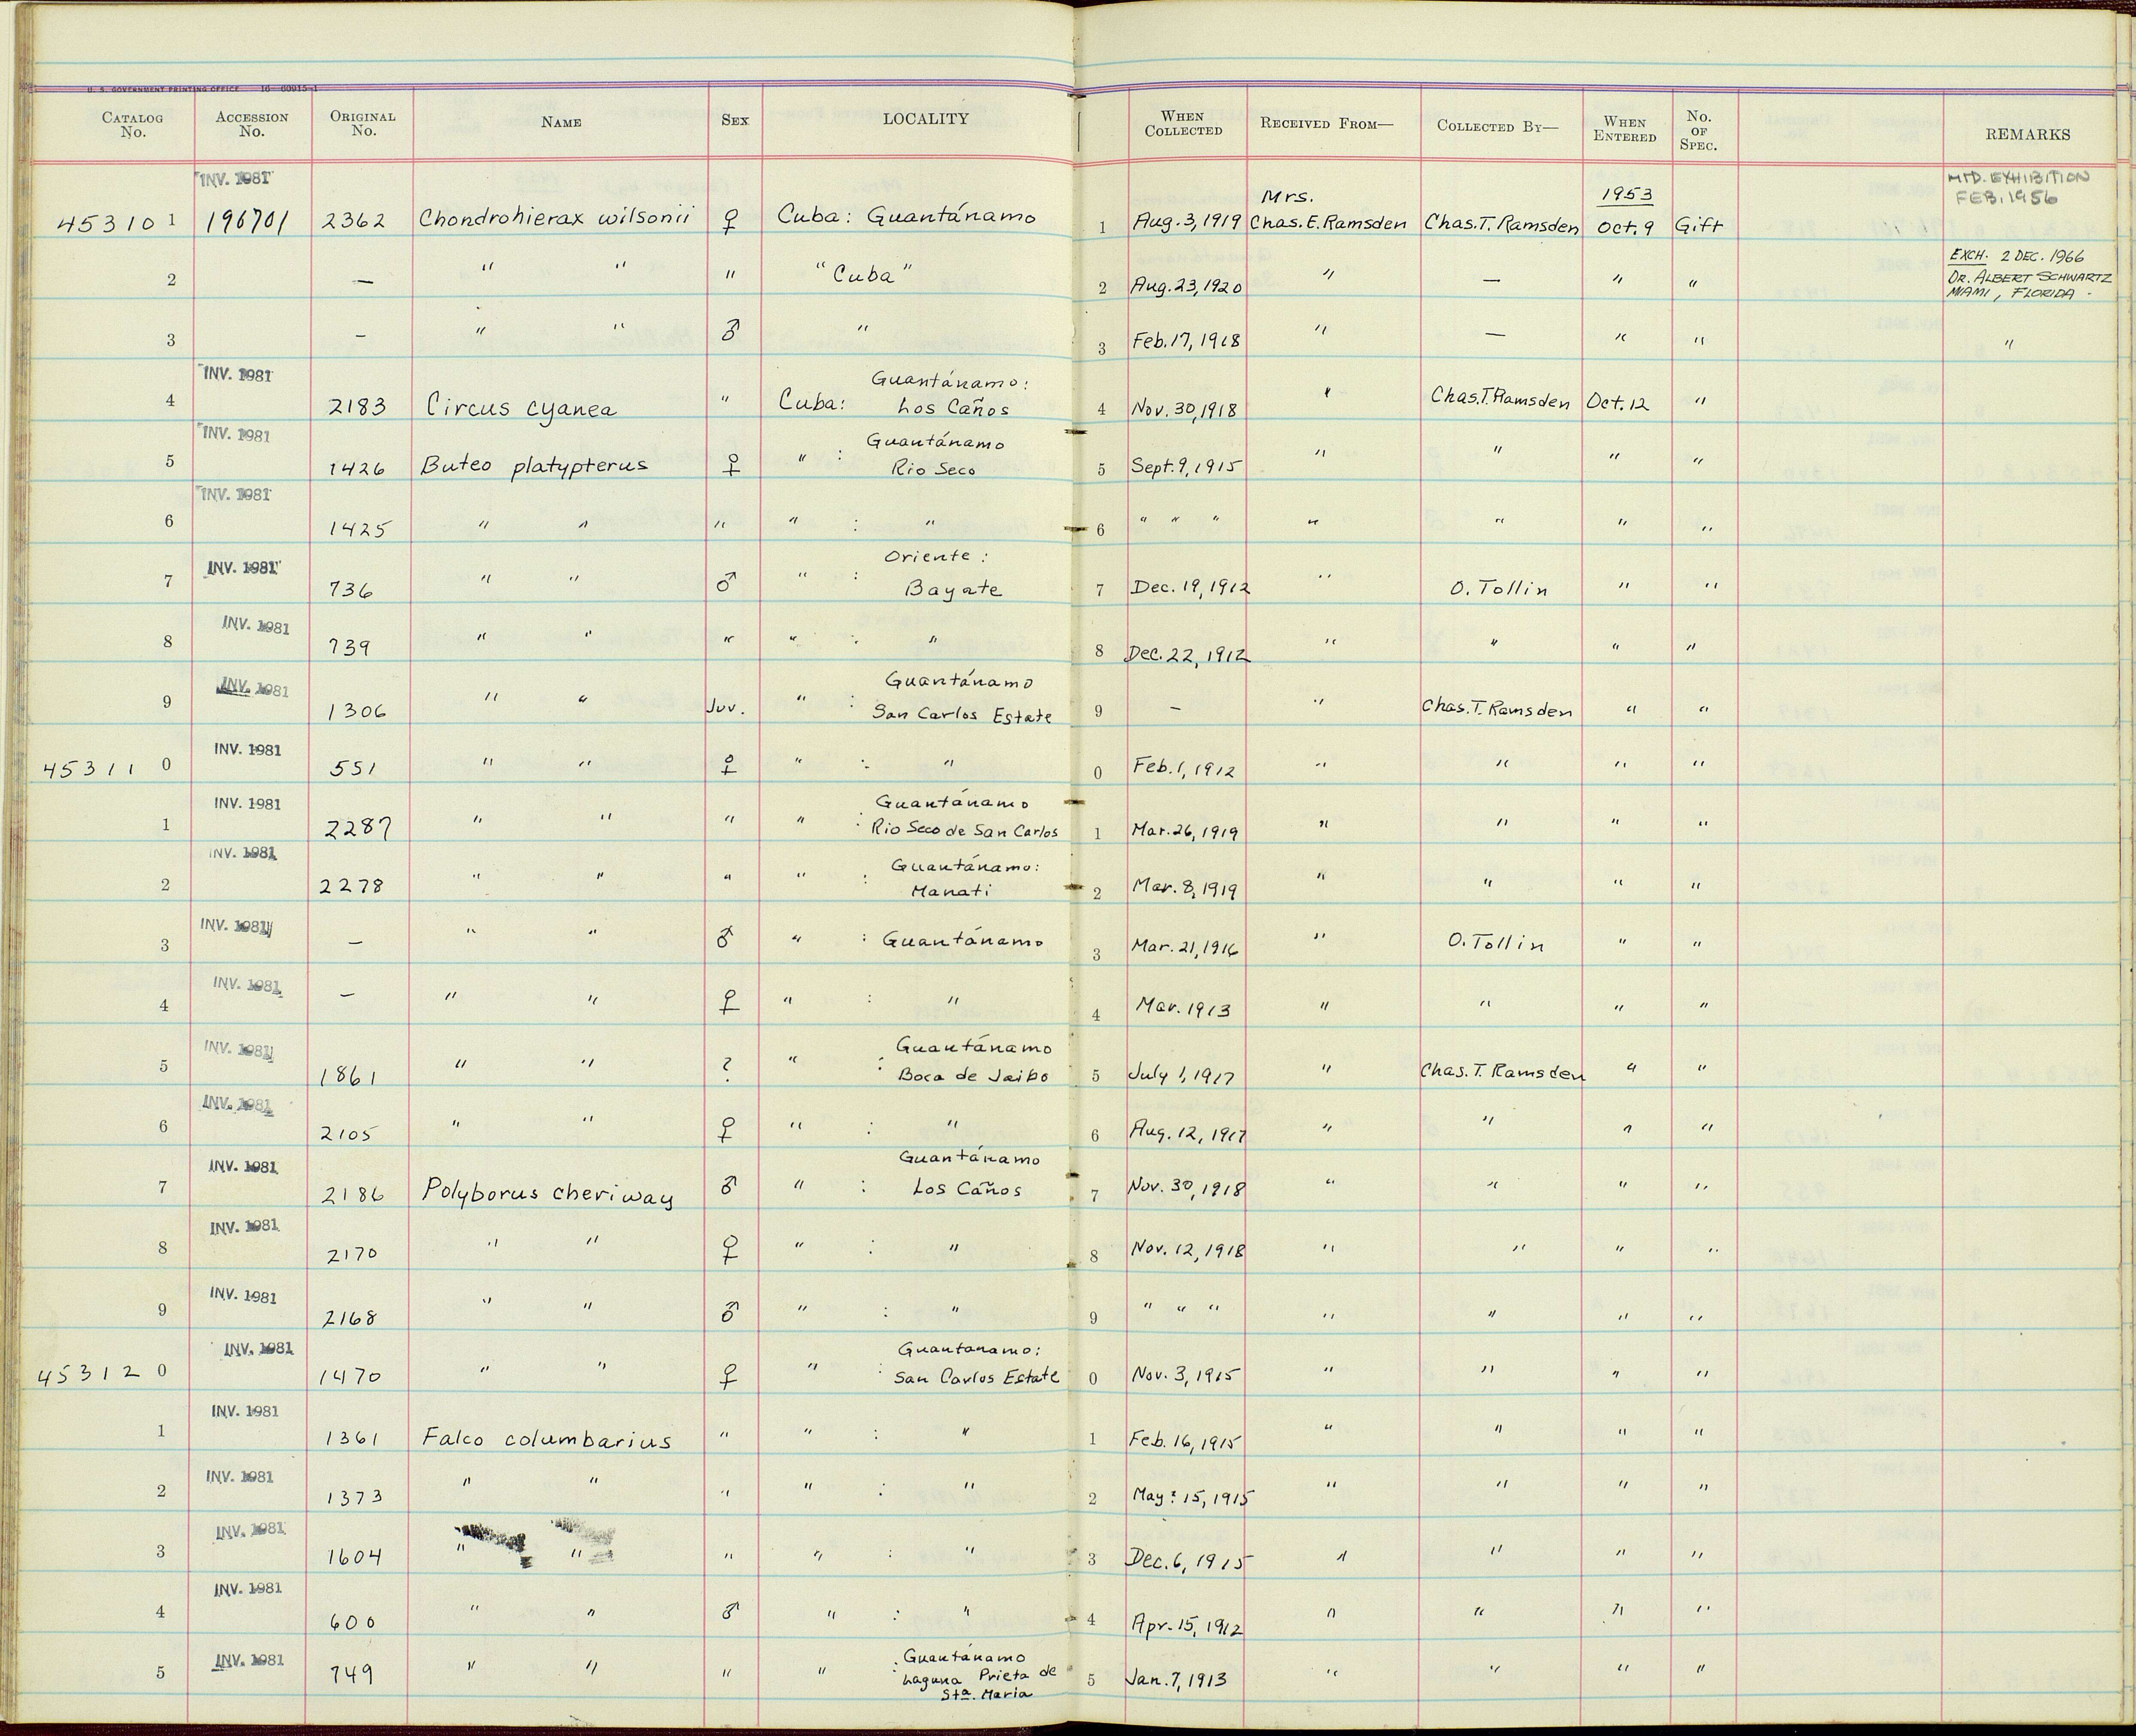 U. S. GOVERNMENT PRINTING OFFICE 16—60915-1
CATALOG No. ACCESSION No. ORIGINAL No. NAME SEX LOCALITY WHEN COLLECTED RECEIVED FROM— COLLECTED BY— WHEN ENTERED No. OF SPEC. REMARKS
INV. 1981 MTD. EXHIBITION
Mrs. 1953 FEB. 1956
45310 1 196701 2362 Chondrohierax wilsonii ♀ Cuba: Guantánamo 1 Aug. 3, 1919 Chas. E. Ramsden Chas. T. Ramsden Oct. 9 Gift
EXCH. 2 DEC. 1966
2 — " " " "Cuba" 2 Aug. 23, 1920 " — " " DR. ALBERT SCHWARTZ
MIAMI, FLORIDA.
3 — " " ♂ " 3 Feb. 17, 1918 " — " " "
INV. 1981 Guantánamo:
4 2183 Circus cyanea " Cuba: Los Caños 4 Nov. 30, 1918 " Chas. T. Ramsden Oct. 12 "
INV. 1981 Guantánamo
5 1426 Buteo platypterus ♀ " : Rio Seco 5 Sept. 9, 1915 " " " "
INV. 1981
6 1425 " " " " : " 6 " " " " " " "
INV. 1981 Oriente:
7 736 " " ♂ " : Bayate 7 Dec. 19, 1912 " O. Tollin " "
INV. 1981
8 739 " " " " : " 8 Dec. 22, 1912 " " " "
INV. 1981 Guantánamo
9 1306 " " Juv. " : San Carlos Estate 9 — " Chas. T. Ramsden " "
INV. 1981
45311 0 551 " " ♀ " : " 0 Feb. 1, 1912 " " " "
INV. 1981 Guantánamo
1 2287 " " " " : Rio Seco de San Carlos 1 Mar. 26, 1919 " " " "
INV. 1981 Guantánamo:
2 2278 " " " " : Manati 2 Mar. 8, 1919 " " " "
INV. 1981
3 — " " ♂ " : Guantánamo 3 Mar. 21, 1916 " O. Tollin " "
INV. 1981
4 — " " ♀ " : " 4 Mar. 1913 " " " "
INV. 1981 Guantánamo
5 1861 " " ? " : Boca de Jaibo 5 July 1, 1917 " Chas. T. Ramsden " "
INV. 1981
6 2105 " " ♀ " : " 6 Aug. 12, 1917 " " " "
INV. 1981 Guantánamo
7 2186 Polyborus cheriway ♂ " : Los Caños 7 Nov. 30, 1918 " " " "
INV. 1981
8 2170 " " ♀ " : " 8 Nov. 12, 1918 " " " "
INV. 1981
9 2168 " " ♂ " : " 9 " " " " " " "
INV. 1981 Guantanamo:
45312 0 1470 " " ♀ " : San Carlos Estate 0 Nov. 3, 1915 " " " "
INV. 1981
1 1361 Falco columbarius " " : " 1 Feb. 16, 1915 " " " "
INV. 1981
2 1373 " " " " : " 2 May? 15, 1915 " " " "
INV. 1981
3 1604 " " " " : " 3 Dec. 6, 1915 " " " "
INV. 1981
4 600 " " ♂ " : " 4 Apr. 15, 1912 " " " "
INV. 1981 Guantánamo
5 749 " " " " : Laguna Prieta de 5 Jan. 7, 1913 " " " "
Sta. Maria